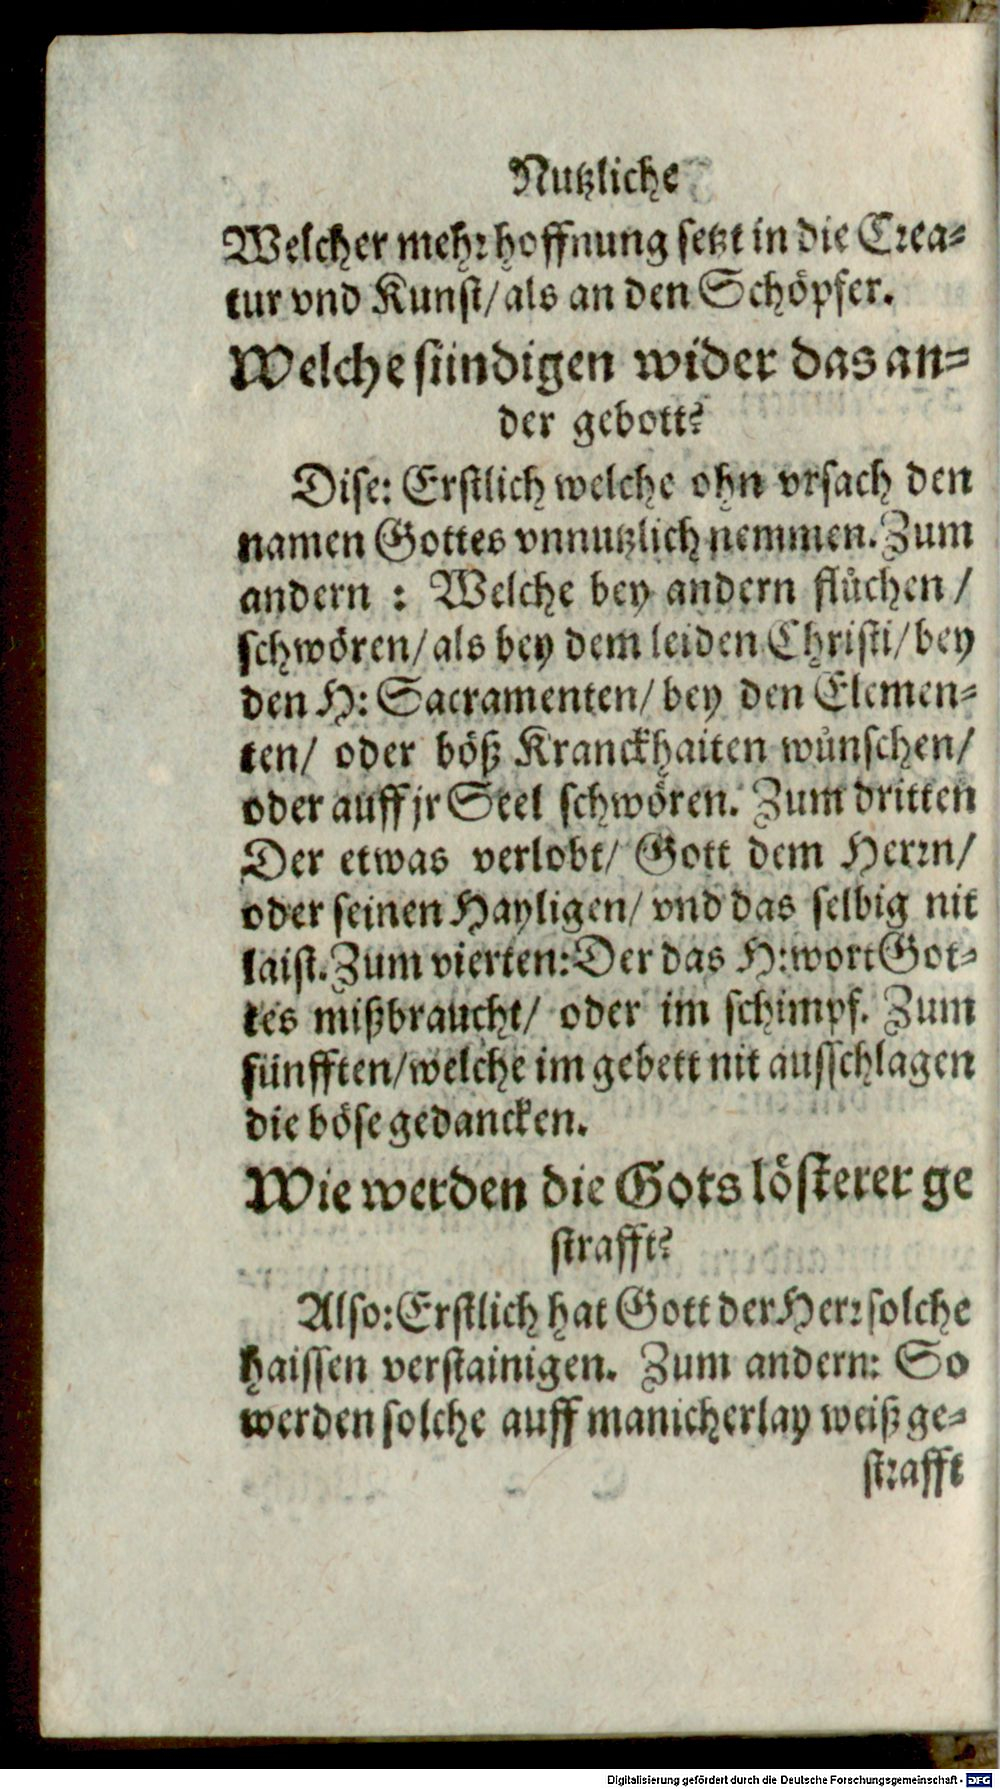 Nutzliche
Welcher mehr hoffnung setzt in die Crea-
tur vnd Kunst/ als an den Schöpfer.
Welche sündigen wider das an-
der gebott?
Dise: Erstlich welche ohn vrsach den
namen Gottes vnnutzlich nemmen. Zum
andern : Welche bey andern flůchen /
schwören/ als bey dem leiden Christi/ bey
den H: Sacramenten/ bey den Elemen-
ten/ oder böß Kranckhaiten wůnschen/
oder auff jr Seel schwören. Zum dritten
Der etwas verlobt/ Gott dem Herrn/
oder seinen Hayligen/ vnd das selbig nit
laist. Zum vierten: Der das H: wort Got-
tes mißbraucht/ oder im schimpf. Zum
fünfften/ welche im gebett nit ausschlagen
die böse gedancken.
Wie werden die Gotslösterer ge
strafft?
Also: Erstlich hat Gott der Herr solche
haissen verstainigen. Zum andern: So
werden solche auff manicherlay weiß ge-
strafft
Digitalisierung gefördert durch die Deutsche Forschungsgemeinschaft - DFG